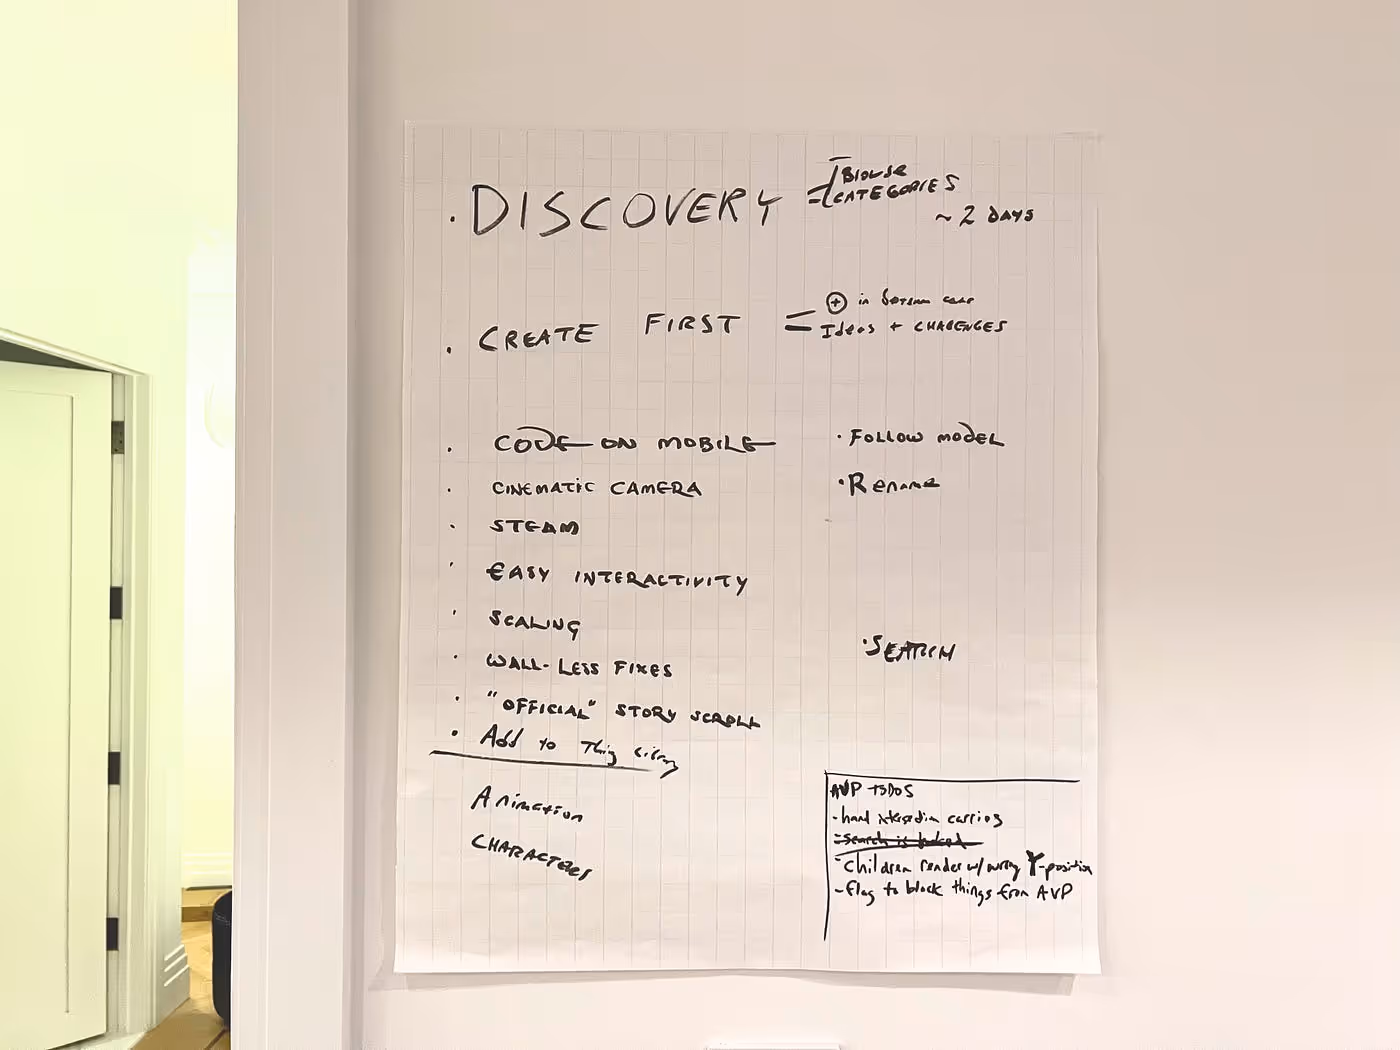 · DISCOVERY
BROWSE
CATEGORIES
~ 2 DAYS
· CREATE FIRST =
⊕ in bottom
Ideas + CHALLENGES
· CODE ON MOBILE
· CINEMATIC CAMERA
· STEAM
· EASY INTERACTIVITY
· SCALING
· WALL-LESS FIXES
· "OFFICIAL" STORY SCROLL
· Add to Thing library
Animation
CHARACTERS
· FOLLOW MODEL
· Rename
· SEARCH
AVP TODOS
- hand interaction carries
- search is
- Children render w/ wrong Y-position
- flag to block things from AVP